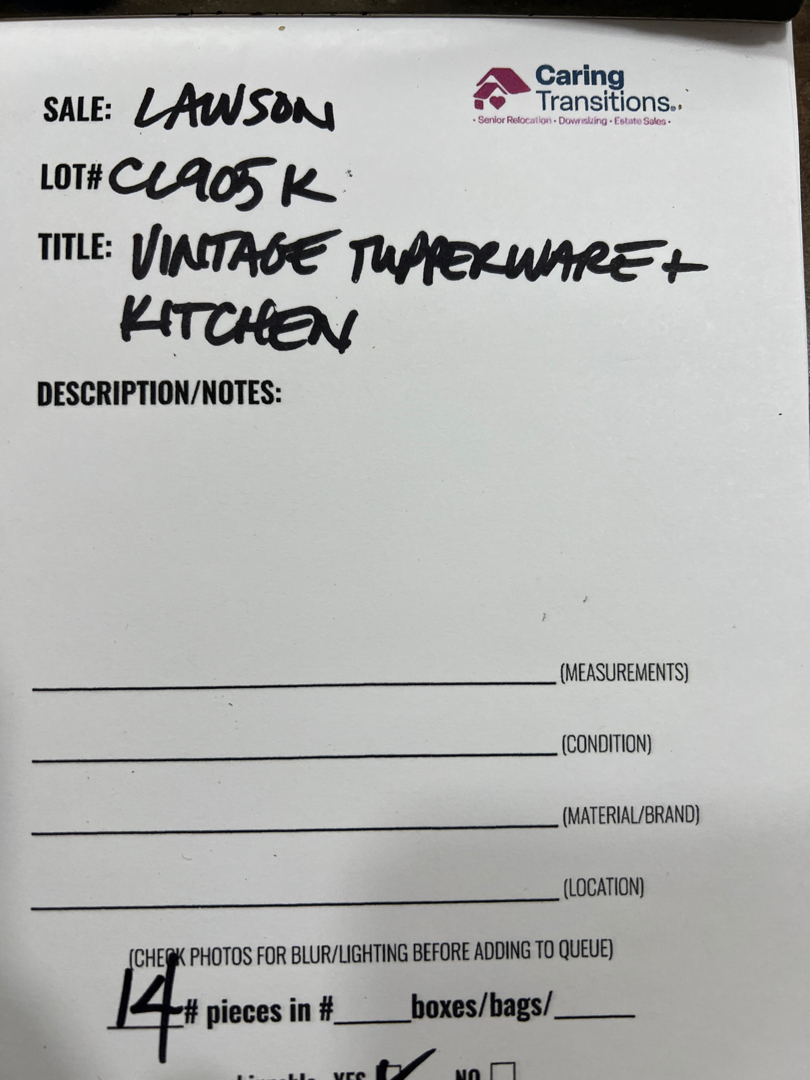 Caring
SALE: LAWSON
Transitions
• Senior Relocation • Downsizing • Estate Sales •
LOT# CL905K
TITLE: VINTAGE TUPPERWARE +
KITCHEN
DESCRIPTION/NOTES:
(MEASUREMENTS)
(CONDITION)
(MATERIAL/BRAND)
(LOCATION)
(CHECK PHOTOS FOR BLUR/LIGHTING BEFORE ADDING TO QUEUE)
14 # pieces in #_____boxes/bags/_____
YES NO